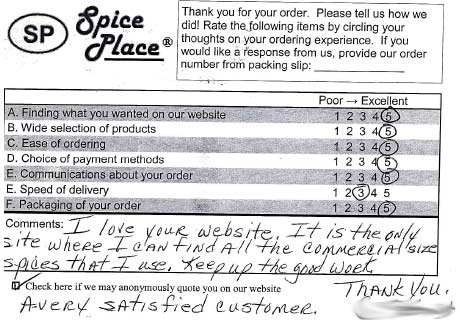 SP Spice Place®
Thank you for your order. Please tell us how we
did! Rate the following items by circling your
thoughts on your ordering experience. If you
would like a response from us, provide our order
number from packing slip:
Poor → Excellent
A. Finding what you wanted on our website 1 2 3 4 5
B. Wide selection of products 1 2 3 4 5
C. Ease of ordering 1 2 3 4 5
D. Choice of payment methods 1 2 3 4 5
E. Communications about your order 1 2 3 4 5
E. Speed of delivery 1 2 3 4 5
F. Packaging of your order 1 2 3 4 5
Comments: I love your website. It is the only
site where I can find all the commercial size
spices that I use. Keep up the good work.
Check here if we may anonymously quote you on our website
Thank you.
A very satisfied customer.